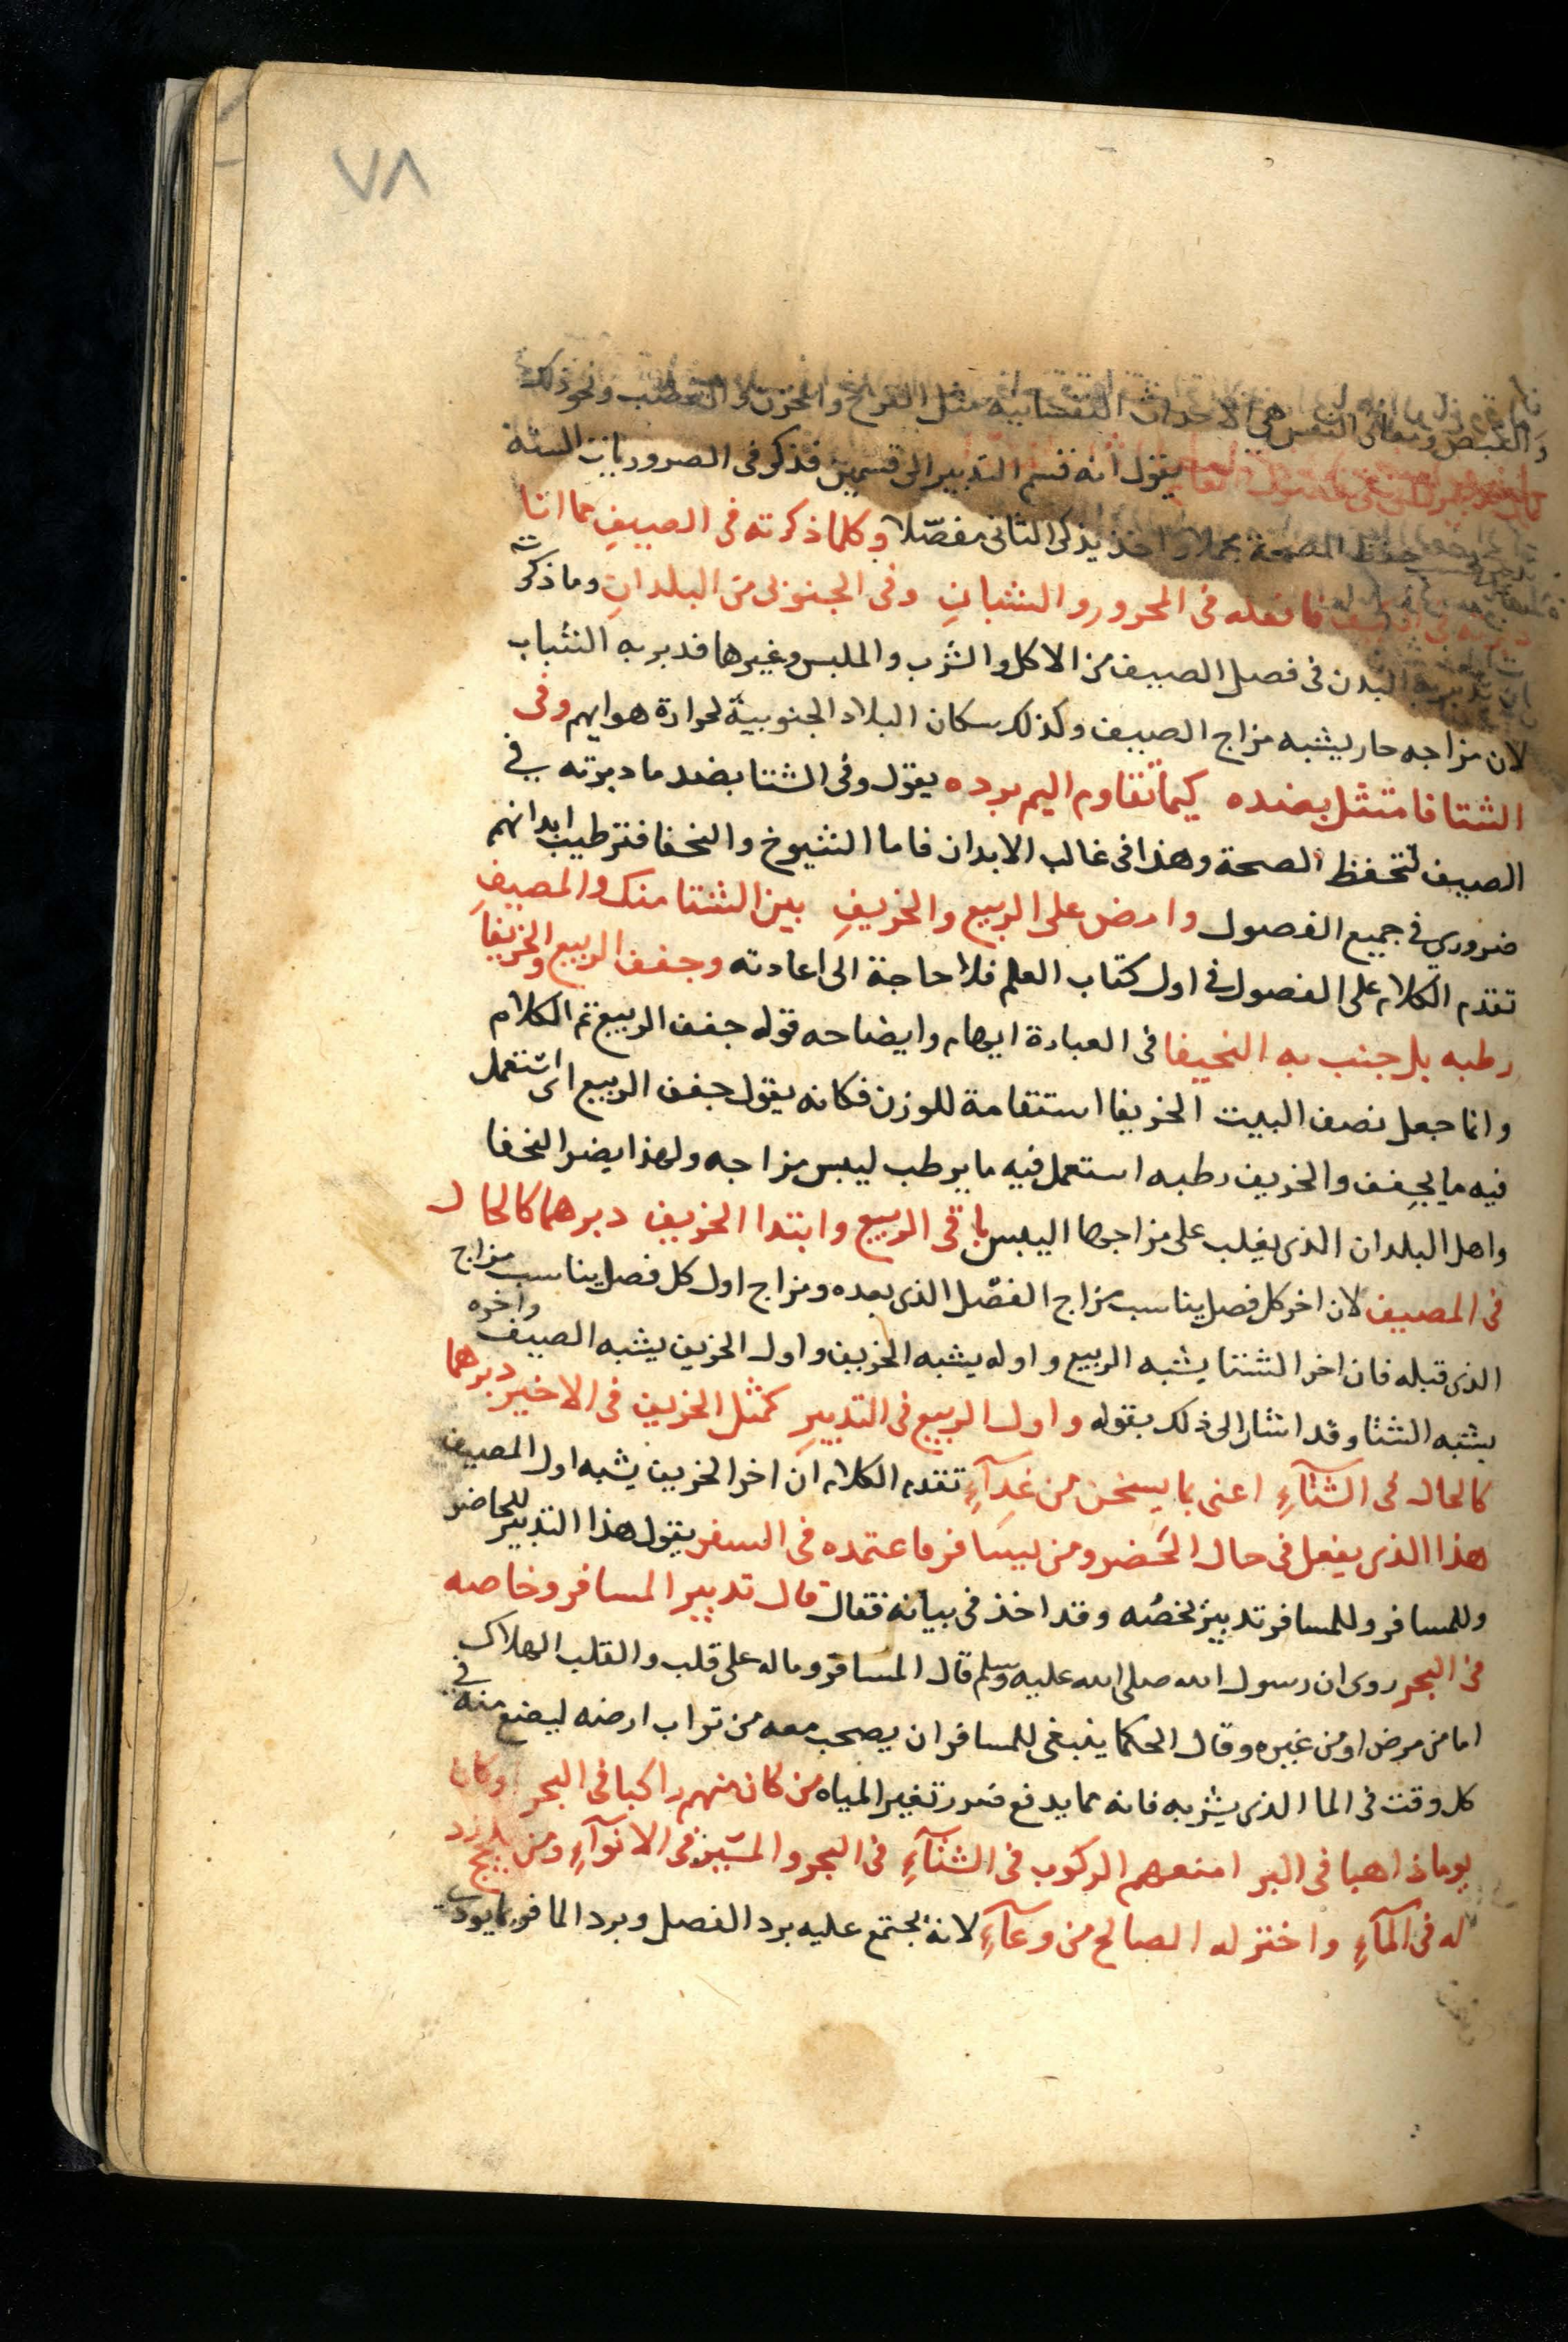 ٧٨
والقبض ومعاني النفس هي الاحداث النفسانية مثل الفرح والحزن والغضب ونحو ذلك
يقول انه قسم التدبير الى قسمين فذكر في الضروريات الستة
حفظ الصحة مجملا واخذ يذكر الثاني مفصّلا وكلما ذكرته في الصيفِ مما اتا
فافعله في المحرور والشبانِ وفي الجنوبي من البلدانِ وما ذكرت
ان تدبر به البدن في فصل الصيف من الاكل والشرب والملبس وغيرها فدبر به الشباب
لان مزاجه حار يشبه مزاج الصيف وكذلك سكان البلاد الجنوبية لحرارة هوايهم وفي
الشتا فامتثل بضده كيما تقاوم اليم برده يقول وفي الشتا بضد ما دبرته في
الصيف لتحفظ الصحة وهذا في غالب الابدان فاما الشيوخ والنحفا فترطيب ابدانهم
ضروري في جميع الفصول وامض على الربيع والخريفِ بين الشتا منك والمصيفِ
تقدم الكلام على الفصول في اول كتاب العلم فلا حاجة الى اعادته وجفف الربيع والخريفا
رطبه بل جنب به النحيفا في العبارة ايهام وايضاحه قوله جفف الربيع تم الكلام
وانما جعل نصف البيت الخريفا استقامة للوزن فكانه يقول جفف الربيع اى استعمل
فيه ما يجفف والخريف رطبه استعمل فيه ما يرطب ليبس مزاجه ولهذا يضر النحفا
واهل البلدان الذى يغلب على مزاجها اليبس باقي الربيع وابتدا الخريف دبرهما كالحال
في المصيف لان اخر كل فصل يناسب مزاج الفصل الذى بعده ومزاج اول كل فصل يناسب مزاج
الذى قبله فان اخر الشتا يشبه الربيع واوله يشبه الخريف واول الخريف يشبه الصيف واخره
يشبه الشتا وقد اشار الى ذلك بقوله واول الربيع في التدبيرِ كمثل الخريف في الاخير دبرهما
كالحال في الشتآءِ اعنى بما يسخن من غدآءِ تقدم الكلام ان اخر الخريف يشبه اول المصيف
هذا الذى يفعل في حال الحضر ومن يسافر ما عتمده في السفر يقول هذا التدبير للحاضر
وللمسافر وللمسافر تدبير يخصُه وقد اخذ في بيانه فقال قال تدبير المسافر وخاصه
في البحر روى ان رسول الله صلى الله عليه وسلم قال المسافر وماله على قلب والقلب الهلاك
اما من مرض او من غيره وقال الحكما ينبغى للمسافر ان يصحب معه من تراب ارضه ليضع منه في
كل وقت في الما الذى يشربه فانه مما يدفع ضرر تغير المياه من كان منهم راكبا في البحر وكان
يوما ذاهبا في البر امنعهم الركوب في الشتآءِ في البحر والمسير في الانوآءِ ومن
له في المآءِ واختر له الصالح من وعآءِ لانه يجتمع عليه برد الفصل وبرد الما فربما يودى